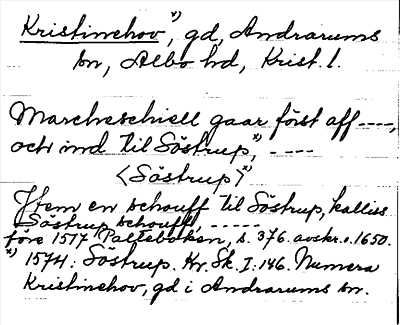 Kristinehov*), gd, Andrarums
sn, Albo hd, Krist. l.
Marcheschiell gaar först aff ----,
och ind til Söstrup*), ----
<Söstrup>*)
Jtem en schouff til Söstrup, kallus
Söstrup schouff, ------
före 1517 (Palteboken, s. 376. avskr. o. 1650.
*) 1574: Söstrup. Kr. Sk. I: 146. Numera
Kristinehov, gd i Andrarums sn.